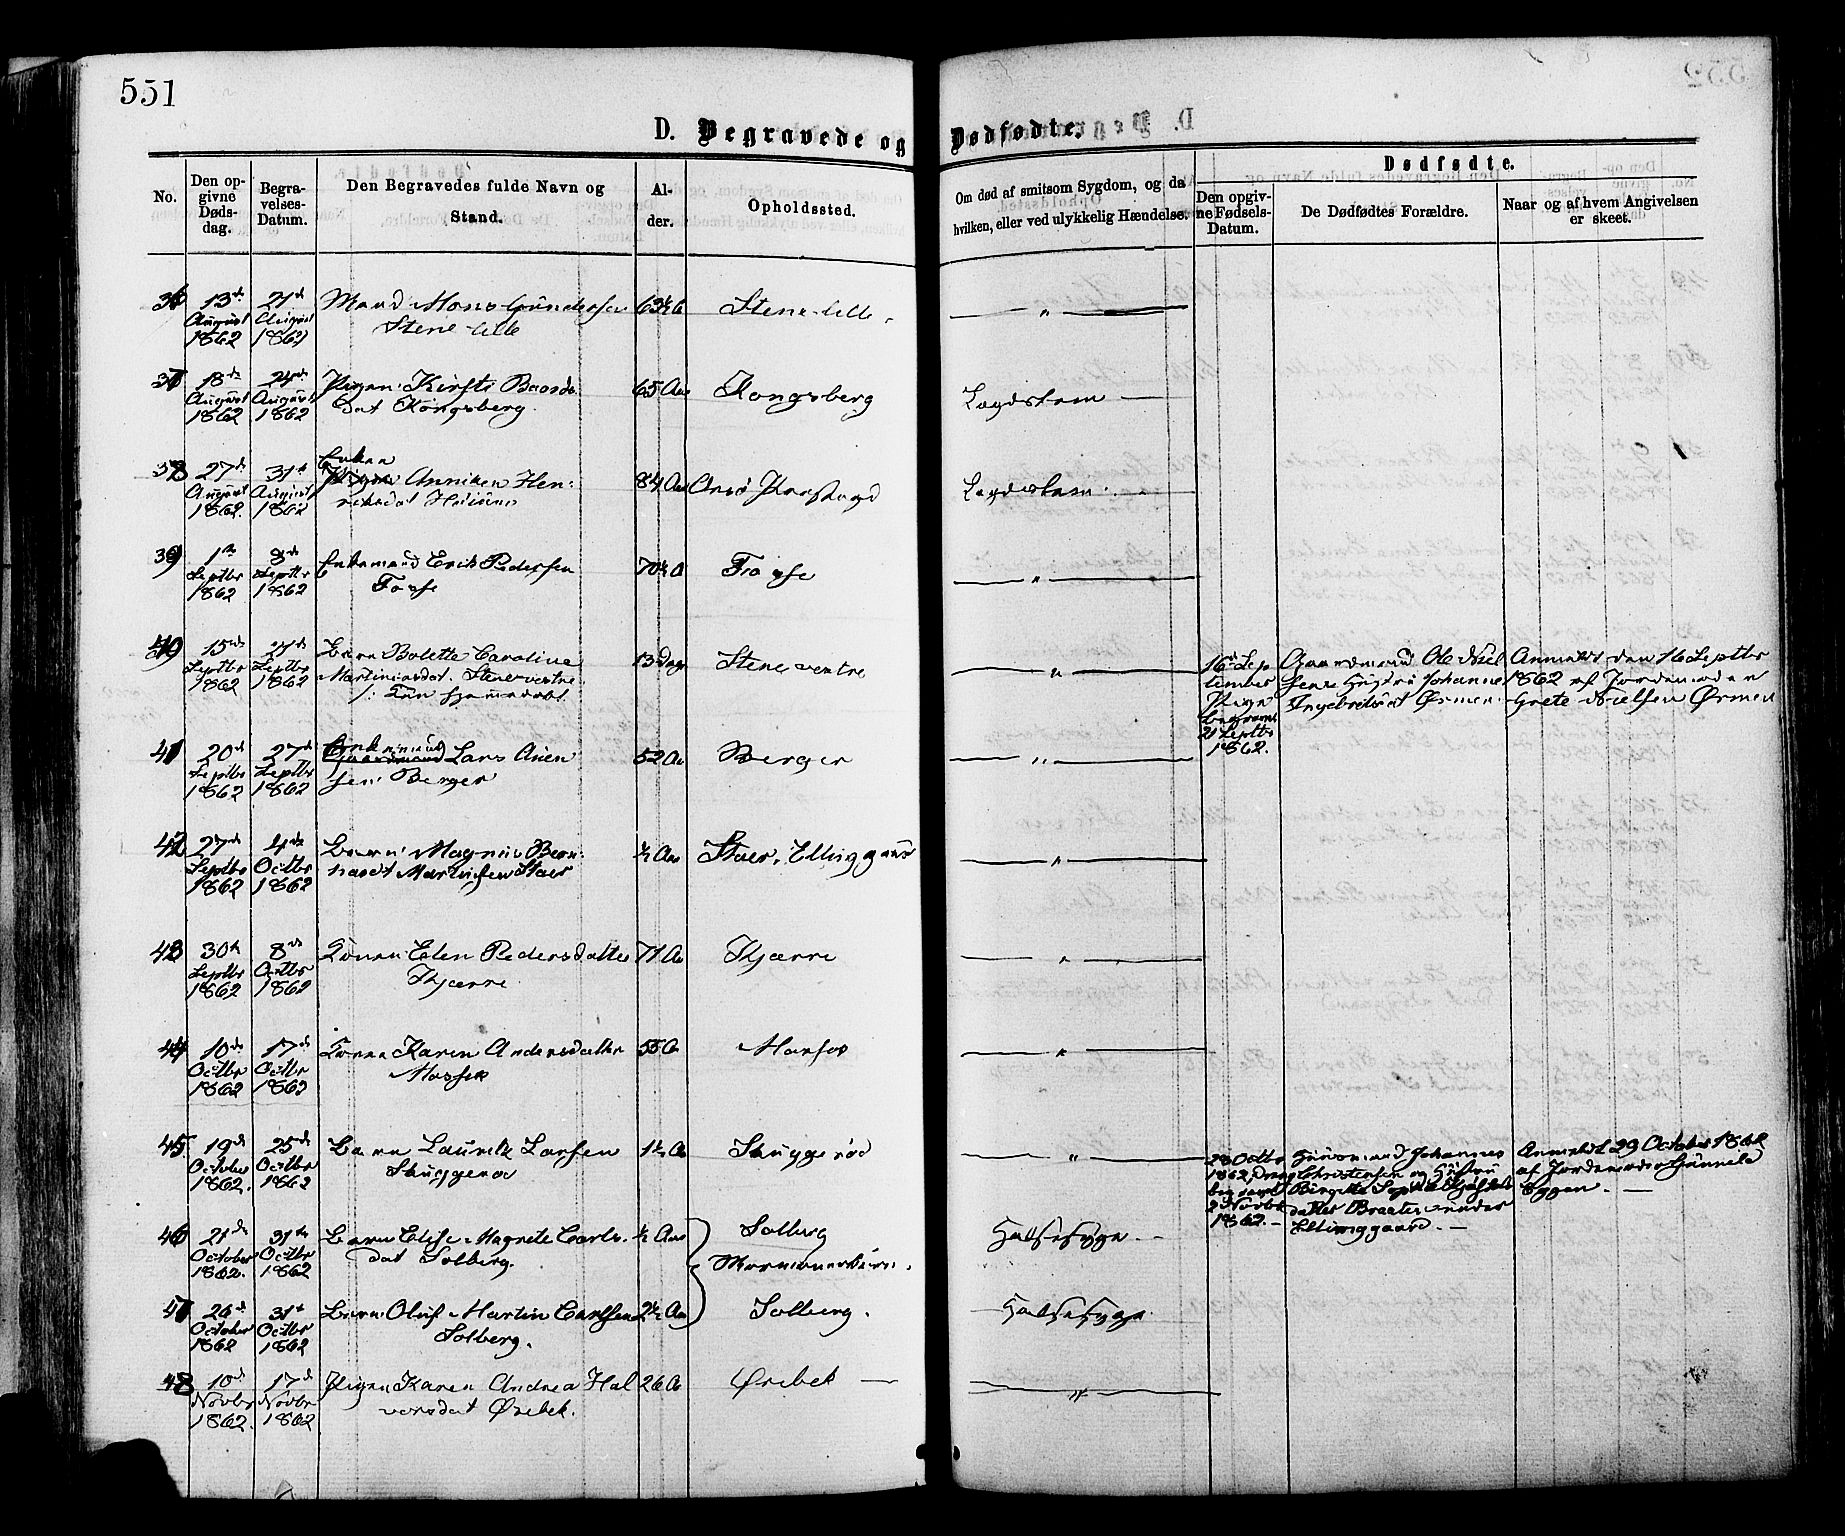 551
D. Begravede og Dødfødte.
No.
Den opgivne Dødsdag.
Begravelses-Datum.
Den Begravedes fulde Navn og Stand.
Alder.
Opholdssted.
Om død af smitsom Sygdom, og da hvilken, eller ved ulykkelig Hændelse.
Dødfødte.
Den opgivne Fødsels-Datum.
De Dødfødtes Forældre.
Naar og af hvem Angivelsen er skeet.
36 13de August 1862 21de August 1862 Mand Mons Gundersen Stene lille 63½ A Stene lille "
37 18de August 1862 24de August 1862 Pigen Kirsti Baardsdat Kongsberg. 65 Aar Kongsberg Lægdslem
38 27de August 1862. 31te August 1862 Enken Anniken Henriksdat 84 Aar Præstegd Lægdslem.
39 1te Septbr 1862 Septbr 1862 Enkemand Erik Pedersen 70½ A "
40 15de Septbr 1862 21de Septbr 1862 Barn Bolette Caroline Martiniusdat. Stene vestre 13 Dage Stene vestre "
16de September Pige begravet 21 Septbr 1862.
Gaardmand Ole Nielsen Hustru Johanne Ingebretsdat Ørmen
Anmeldt den 16 Septbr 1862 af Jordemoder Grete Nielsen Ørmen
41 20de Septbr 1862 27de Septbr 1862 Lars Berger 52 Aar Berger "
42 27de Septbr 1862 4de Octbr 1862 Barn: Magnus Bernhardt Martinsen Staer ½ Aar Staer, Ellinggaard "
43 30te Septbr 1862 8de Octbr 1862 Konen: Elen Pedersdatter Kjærre 71 Aar Kjærre "
44 10de Octbr 1862 17de Octbr 1862 Konen Karen Andersdatter 55 A "
45 19de October 1862. 25de Octbr 1862 Barn Laurits Larsen Skuggerød 1½ A Skuggerød "
28 Octbr 1862, Dreng begravet 2 Novbr 1862. –
Huusmand Johannes Christensen og Hustru Birgitte datter Braaten under Ellinggaard. –
Anmeldt 29 October 1862 af Jordemoder Gunnela Eggen. –
46 21de October 1862. 31te Octbr 1862 Barn Elise Magrete Carlsdat Solberg. ½ Aar Solberg Mormonerbørn. Halsesyge. –
47 26de October 1862 31te Octbr 1862 Barn Oluf Martin Carlsen Solberg. 2½ Aar Solberg. Halsesyge
48 10de Novbr 1862. 17de Novbr 1862 Pigen Karen Andrea Halvorsdat Ørebek. 26 A Ørebek – "